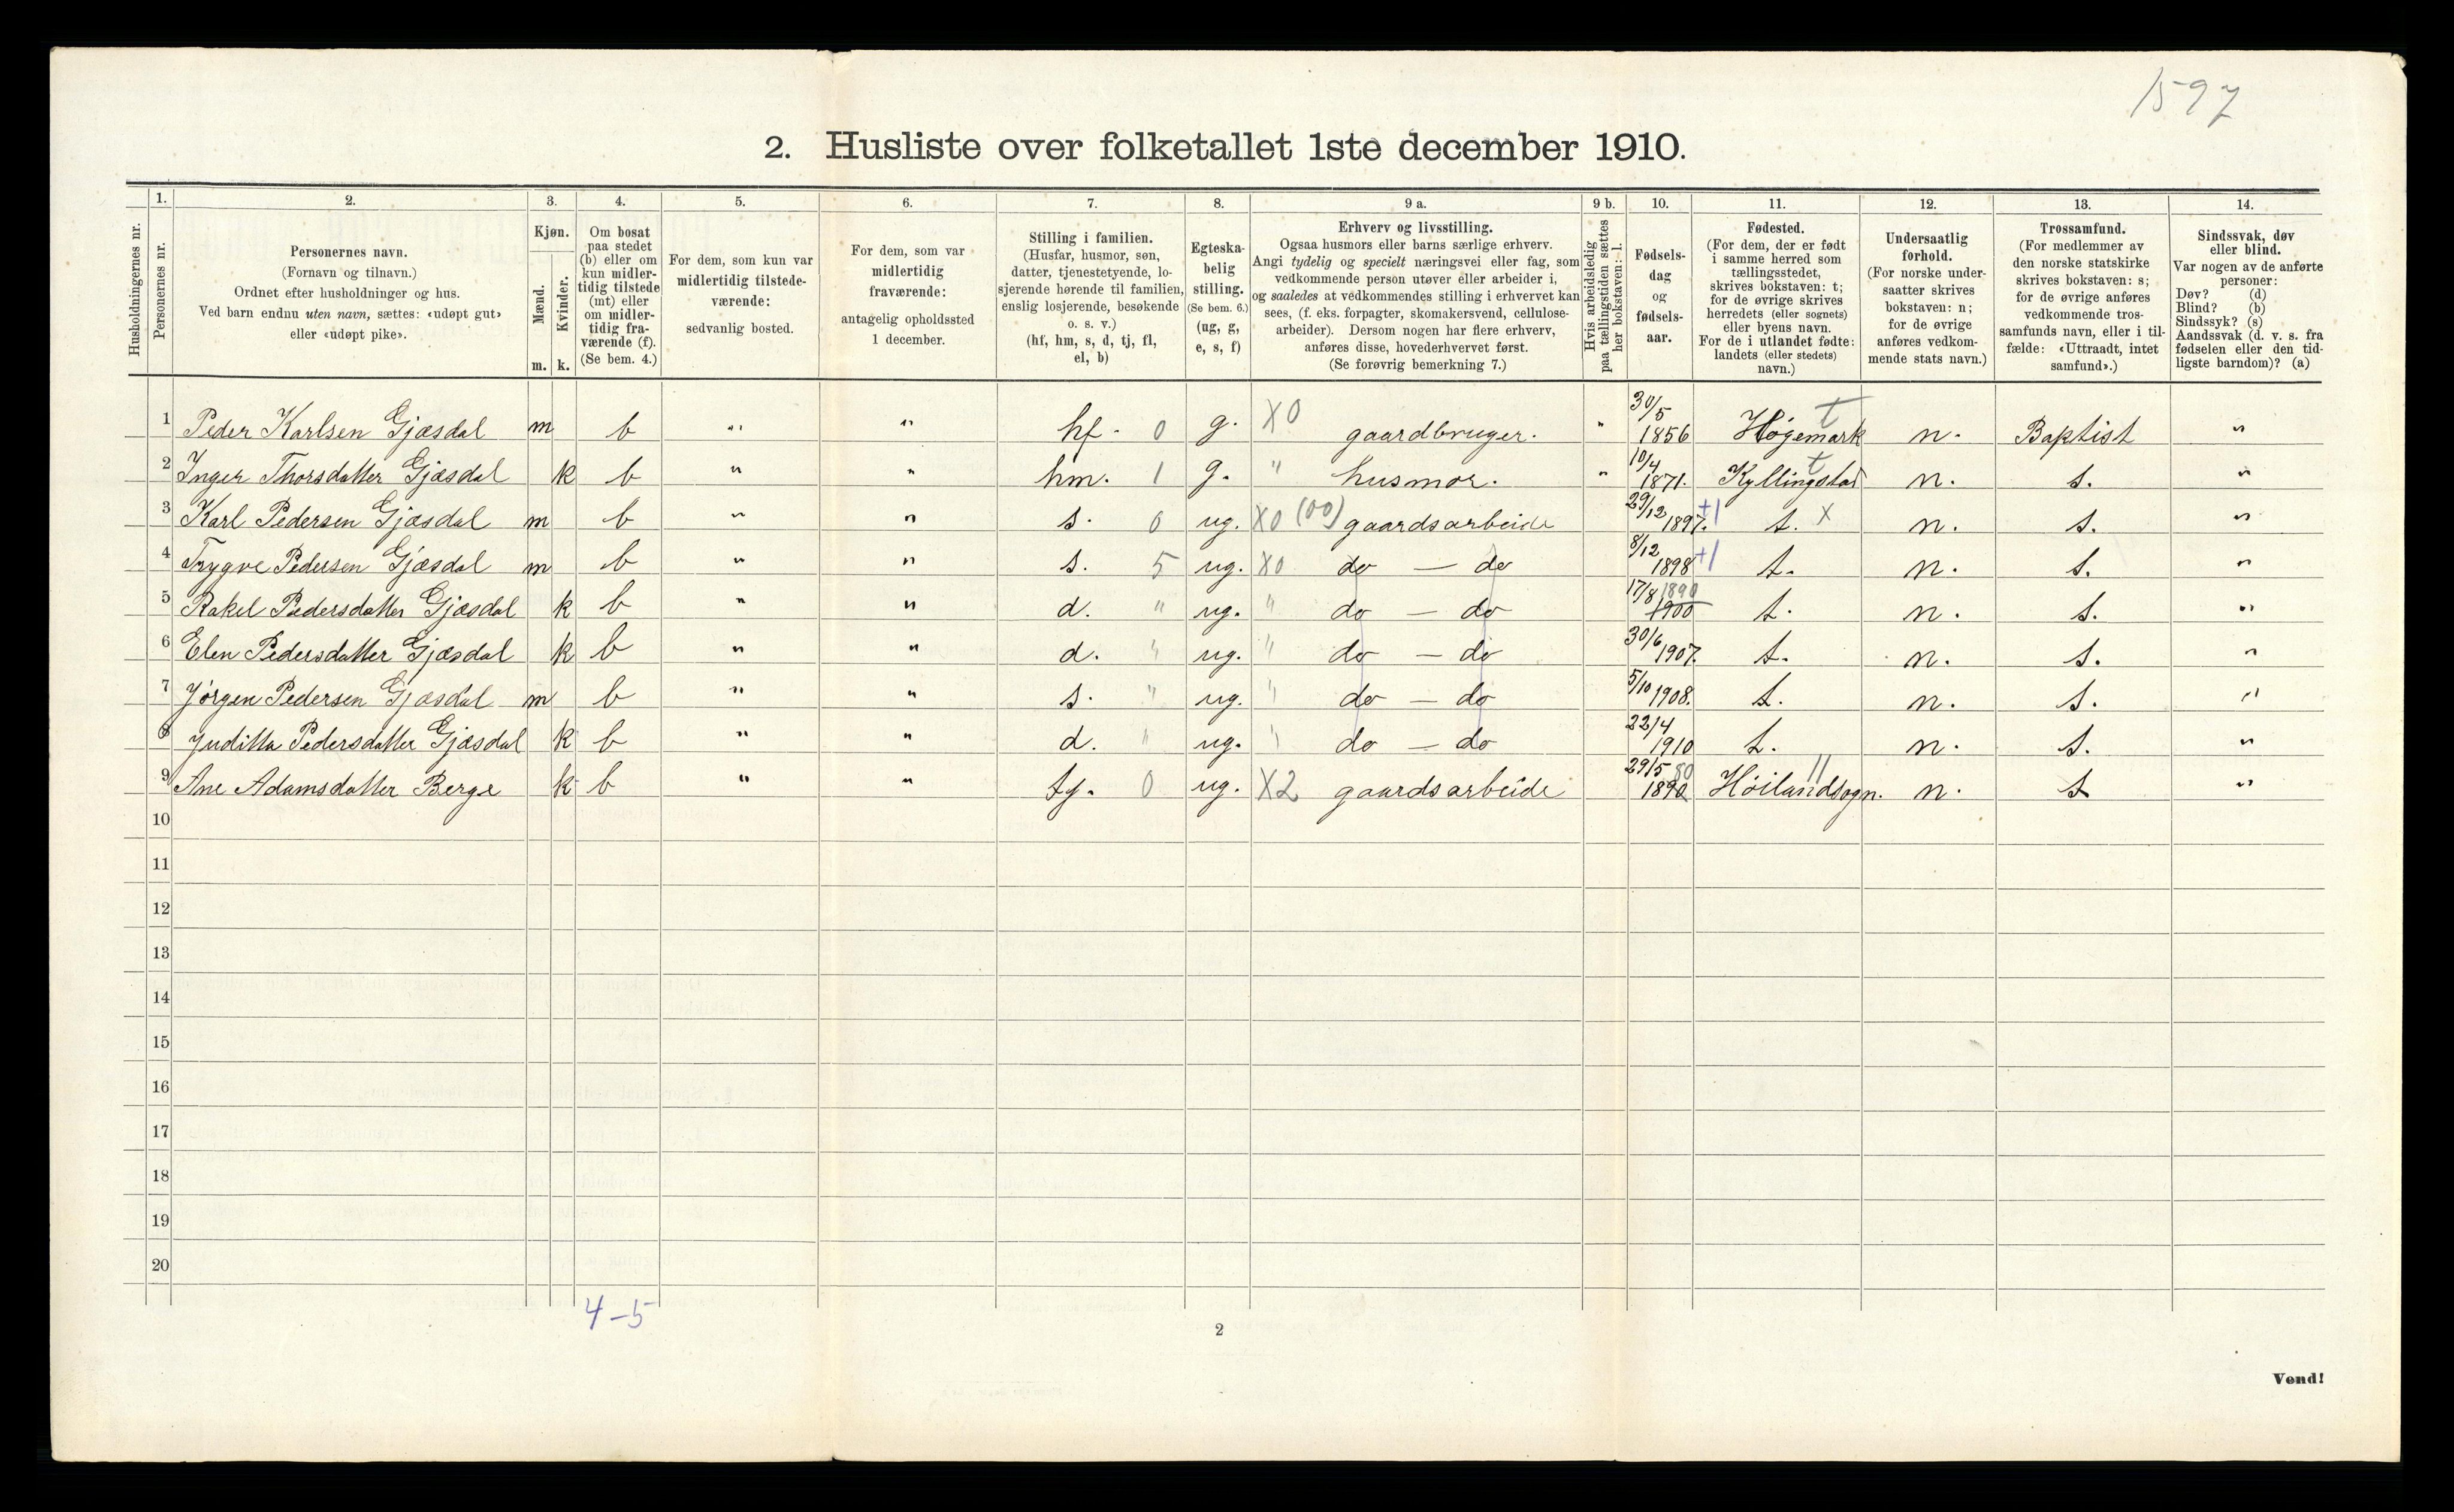 1597
2. Husliste over folketallet 1ste december 1910.
Husholdningernes nr.
1.
Personernes nr.
2.
Personernes navn.
(Fornavn og tilnavn.)
Ordnet efter husholdninger og hus.
Ved barn endnu uten navn, sættes: «udøpt gut»
eller «udøpt pike».
3.
Kjøn.
Mænd.
Kvinder.
m. k.
4.
Om bosat
paa stedet
(b) eller om
kun midler-
tidig tilstede
(mt) eller
om midler-
tidig fra-
værende (f).
(Se bem. 4.)
5.
For dem, som kun var
midlertidig tilstede-
værende:
sedvanlig bosted.
6.
For dem, som var
midlertidig
fraværende:
antagelig opholdssted
1 december.
7.
Stilling i familien.
(Husfar, husmor, søn,
datter, tjenestetyende, lo-
sjerende hørende til familien,
enslig losjerende, besøkende
o. s. v.)
(hf, hm, s, d, tj, fl,
el, b)
8.
Egteska-
belig
stilling.
(Se bem. 6.)
(ug, g,
e, s, f)
9 a.
Erhverv og livsstilling.
Ogsaa husmors eller barns særlige erhverv.
Angi tydelig og specielt næringsvei eller fag, som
vedkommende person utøver eller arbeider i,
og saaledes at vedkommendes stilling i erhvervet kan
sees, (f. eks. forpagter, skomakersvend, cellulose-
arbeider). Dersom nogen har flere erhverv,
anføres disse, hovederhvervet først.
(Se forøvrig bemerkning 7.)
9 b.
Hvis arbeidsledig
paa tællingstiden sættes
her bokstaven: l.
10.
Fødsels-
dag
og
fødsels-
aar.
11.
Fødested.
(For dem, der er født
i samme herred som
tællingsstedet,
skrives bokstaven: t;
for de øvrige skrives
herredets (eller sognets)
eller byens navn.
For de i utlandet fødte:
landets (eller stedets)
navn.)
12.
Undersaatlig
forhold.
(For norske under-
saatter skrives
bokstaven: n;
for de øvrige
anføres vedkom-
mende stats navn.)
13.
Trossamfund.
(For medlemmer av
den norske statskirke
skrives bokstaven: s;
for de øvrige anføres
vedkommende tros-
samfunds navn, eller i til-
fælde: «Uttraadt, intet
samfund».)
14.
Sindssvak, døv
eller blind.
Var nogen av de anførte
personer:
Døv? (d)
Blind? (b)
Sindssyk? (s)
Aandssvak (d. v. s. fra
fødselen eller den tid-
ligste barndom)? (a)
1 Peder Karlsen Gjæsdal m b " " hf. 0 g. X0 gaardbruger. " 30/5 1856 Høgemark t n. Baptist "
2 Inger Thorsdatter Gjæsdal k b " " hm. 1 g. " husmor. " 10/4 1871. Kyllingstad t n. s. "
3 Karl Pedersen Gjæsdal m b " " s. 0 ug. X0 (00) gaardsarbeide 29/12 1897. +1 t. X n. s. "
4 Trygve Pedersen Gjæsdal m b " " s. 5 ug. X0 do — do 8/12 1898 +1 t. n. s. "
5 Rakel Pedersdatter Gjæsdal k b " " d. " ug. " do — do 17/8 1890 1900 t. n. s. "
6 Elen Pedersdatter Gjæsdal k b " " d. " ug. " do — do 30/6 1907. t. n. s. "
7 Jørgen Pedersen Gjæsdal m b " " s. " ug. " do — do 5/10 1908. t. n. s. "
8 Juditta Pedersdatter Gjæsdal k b " " d. " ug. " do — do 22/4 1910 t. n. s. "
9 Ane Adamsdatter Berge k b " " ty. 0 ug. X2 gaardsarbeide 29/5 80 1890 Høilandsogn. 11 n. s "
10
11
12
13
14
15
16
17
18
19
20
4–5
2
Vend!